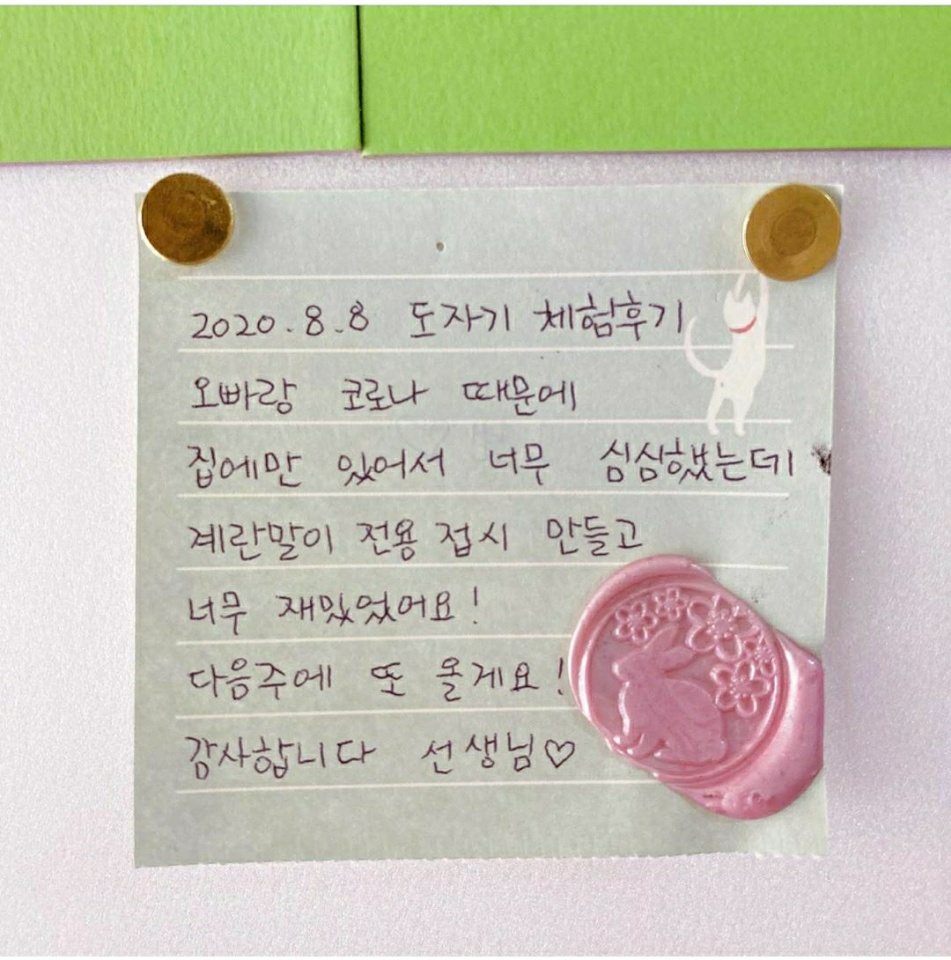 2020.8.8 도자기 체험후기
오빠랑 코로나 때문에
집에만 있어서 너무 심심했는데
계란말이 전용 접시 만들고
너무 재밌었어요!
다음주에 또 올게요!
감사합니다 선생님♡